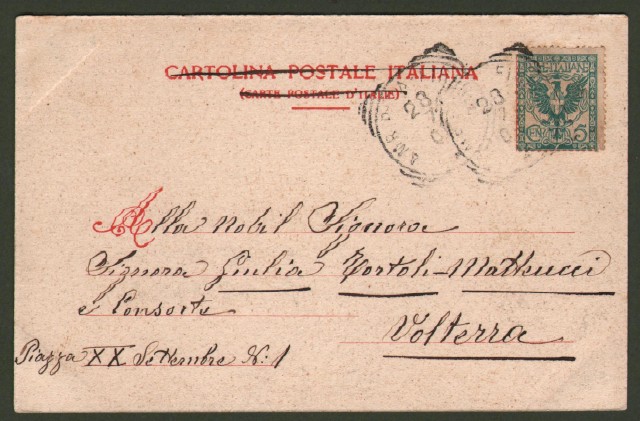 CARTOLINA POSTALE ITALIANA
(CARTE POSTALE D'ITALIE)
CENT. 5
Alla Nobil Signora
Signora Giulia Tortoli-Matteucci
e Consorte
Volterra
Piazza XX Settembre N: 1